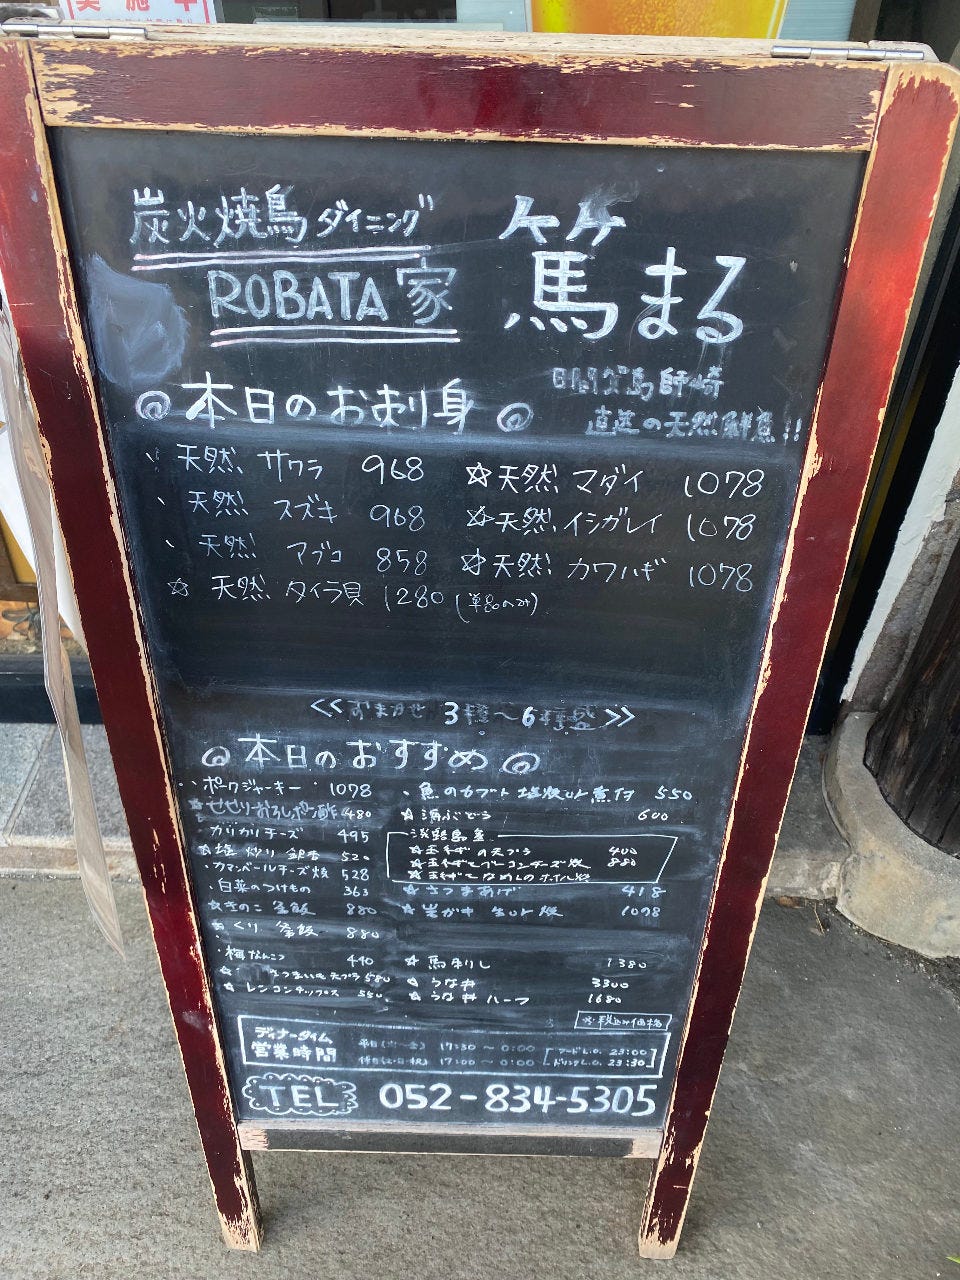 実施中
炭火焼鳥ダイニング
ROBATA家
篤まる
日間賀島師崎
直送の天然鮮魚!!
◎本日のお刺身◎
、天然 サワラ 968
、天然 スズキ 968
、天然 アブコ 858
☆天然 タイラ貝 1280 (単品のみ)
☆天然 マダイ 1078
☆天然 イシガレイ 1078
☆天然 カワハギ 1078
<<おまかせ 3種〜6種盛>>
◎本日のおすすめ◎
、ポークジャーキー 1078
★せせりおろしポン酢 480
、カリカリチーズ 495
★塩炒り銀杏 520
、カマンベールチーズ焼 528
、白菜のつけもの 363
★きのこ釜飯 880
くり釜飯 880
、梅なんこつ 440
☆さつまいも天プラ 580
★レンコンチップス 550
、魚のカブト 塩焼or煮付 550
★海ぶどう 600
淡路島産
★玉ねぎの天プラ 400
★玉ねぎとベーコンチーズ焼 880
★玉ねぎとなめしのホイル焼
★さつまあげ 418
★岩がき 生or焼 1078
★馬刺し 1380
★うな丼 3300
★うな丼 ハーフ 1680
※税込み価格
ディナータイム
営業時間
平日(火〜金) 17:30 〜 0:00
休日(土・日・祝) 17:00 〜 0:00
フードL.O. 23:00
ドリンクL.O. 23:30
TEL 052-834-5305